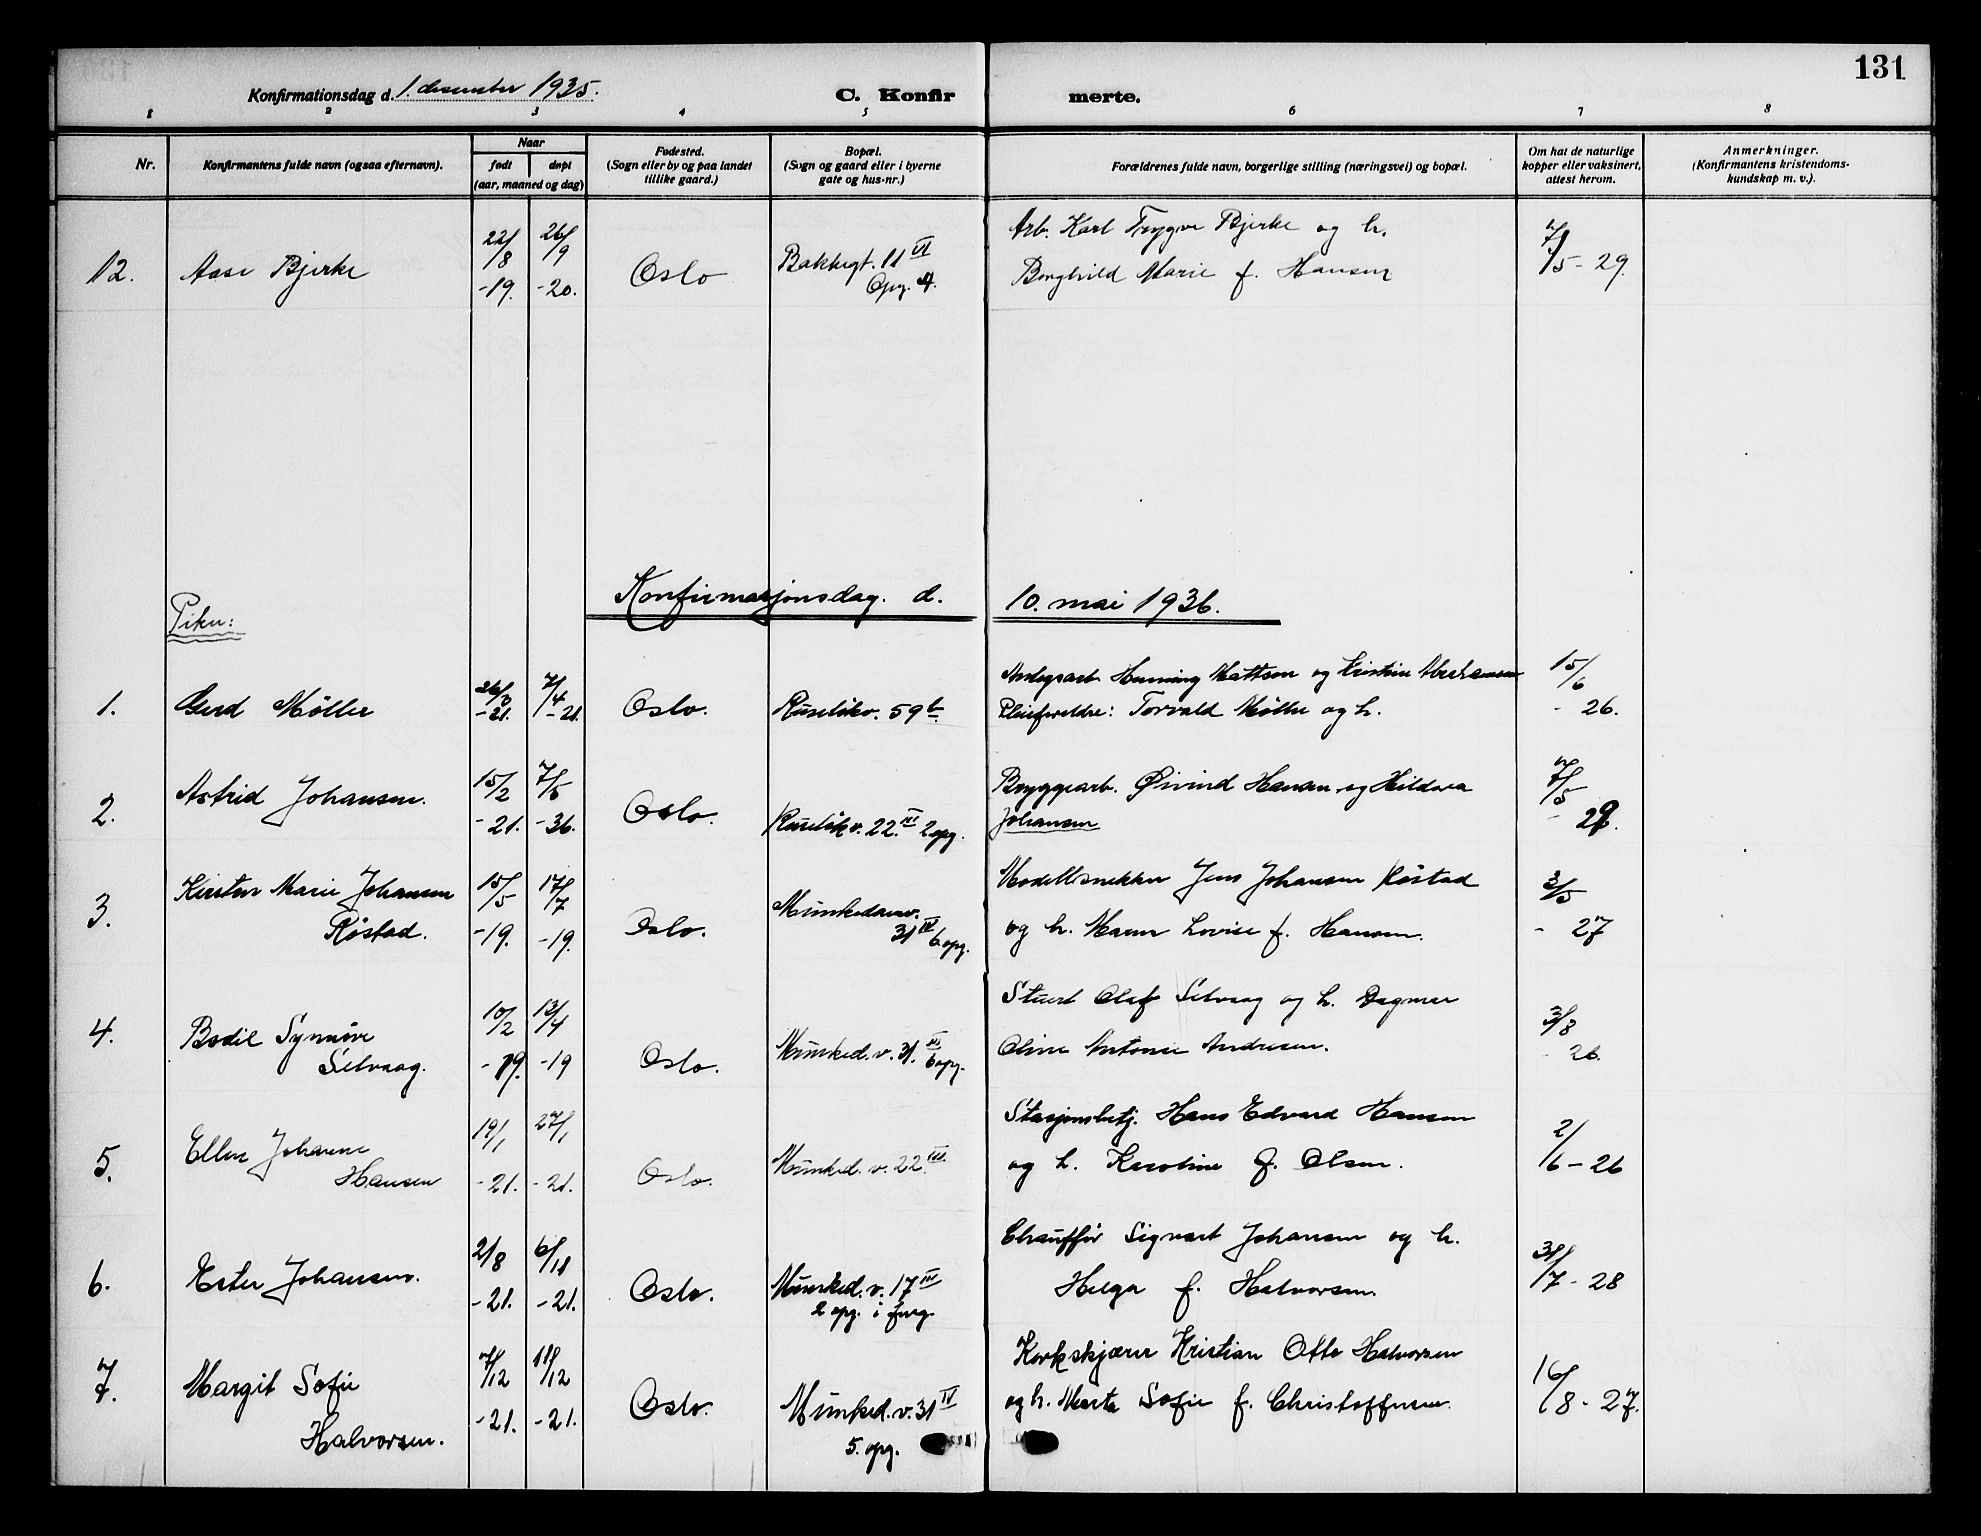 131
Konfirmationsdag d. 1. desember 1935.
C. Konfir
merte.
1 2 3 4 5 6 7 8
Nr.
Konfirmantens fulde navn (ogsaa efternavn).
Naar
født
døpt
(aar, maaned og dag)
Fødested.
(Sogn eller by og paa landet
tillike gaard.)
Bopæl.
(Sogn og gaard eller i byerne
gate og hus-nr.)
Forældrenes fulde navn, borgerlige stilling (næringsvei) og bopæl.
Om hat de naturlige
kopper eller vaksinert,
attest herom.
Anmerkninger.
(Konfirmantens kristendoms-
kundskap m. v.).
12.
Aase Bjerke
22/8
-19.
26/9
-20.
Oslo
Bakkegt. 11 VI
Opg. 4.
Arb. Karl Trygve Bjerke og h.
Borghild Marie f. Hansen
7/5 - 29.
Konfirmasjonsdag. d. 10. mai 1936.
Piker:
1.
Gerd Møller
26/3
-21.
7/4
-21.
Oslo.
Ruseløkv. 59 b.
Henning Mattson og Kristine Abrahamsen
Pleieforeldre: Torvald Møller og h.
15/6
- 26.
2.
Astrid Johansen.
15/2
-21.
7/5
-36.
Oslo.
Ruseløkv. 22. III 2 opg.
Bryggearb. Øivind Hansen og Hildora
Johansen
7/5
-
3.
Kirsten Marie Johansen
Røstad.
15/5
-19.
17/7
-19.
Oslo.
Munkedamsv.
31 IV 6 opg.
Modellsnekker Jens Johansen Røstad
og h. Maren Lovise f. Hansen.
3/5
- 27
4.
Bodil Synnøve
Selvaag.
10/2
-19.
13/4
-19
Oslo.
Munked. v. 31. III
6 opg.
Stuert Olaf Selvaag og h. Dagmar
Oline Antonie Andresen.
3/8
- 26.
5.
Ellen Johanne
Hansen
19/1
-21.
27/1
-21.
Oslo.
Munked. v. 22. III.
Stasjonsbetj. Hans Edvard Hansen
og h. Karoline f. Olsen.
2/6 - 26
6.
Ester Johansen.
21/8
-21.
6/11
-21.
Oslo.
Munked. v. 17 III
2 opg. i forg.
Chauffør Sigvart Johansen og h.
Helga f. Halvorsen.
31/7 - 28
7.
Margit Sofie
Halvorsen.
7/12
-21.
11/12
-21.
Oslo.
Munked. v. 31 IV
5. opg.
Korkskjærer Kristian Otto Halvorsen
og h. Marta Sofie f. Christoffersen.
16/8 - 27.